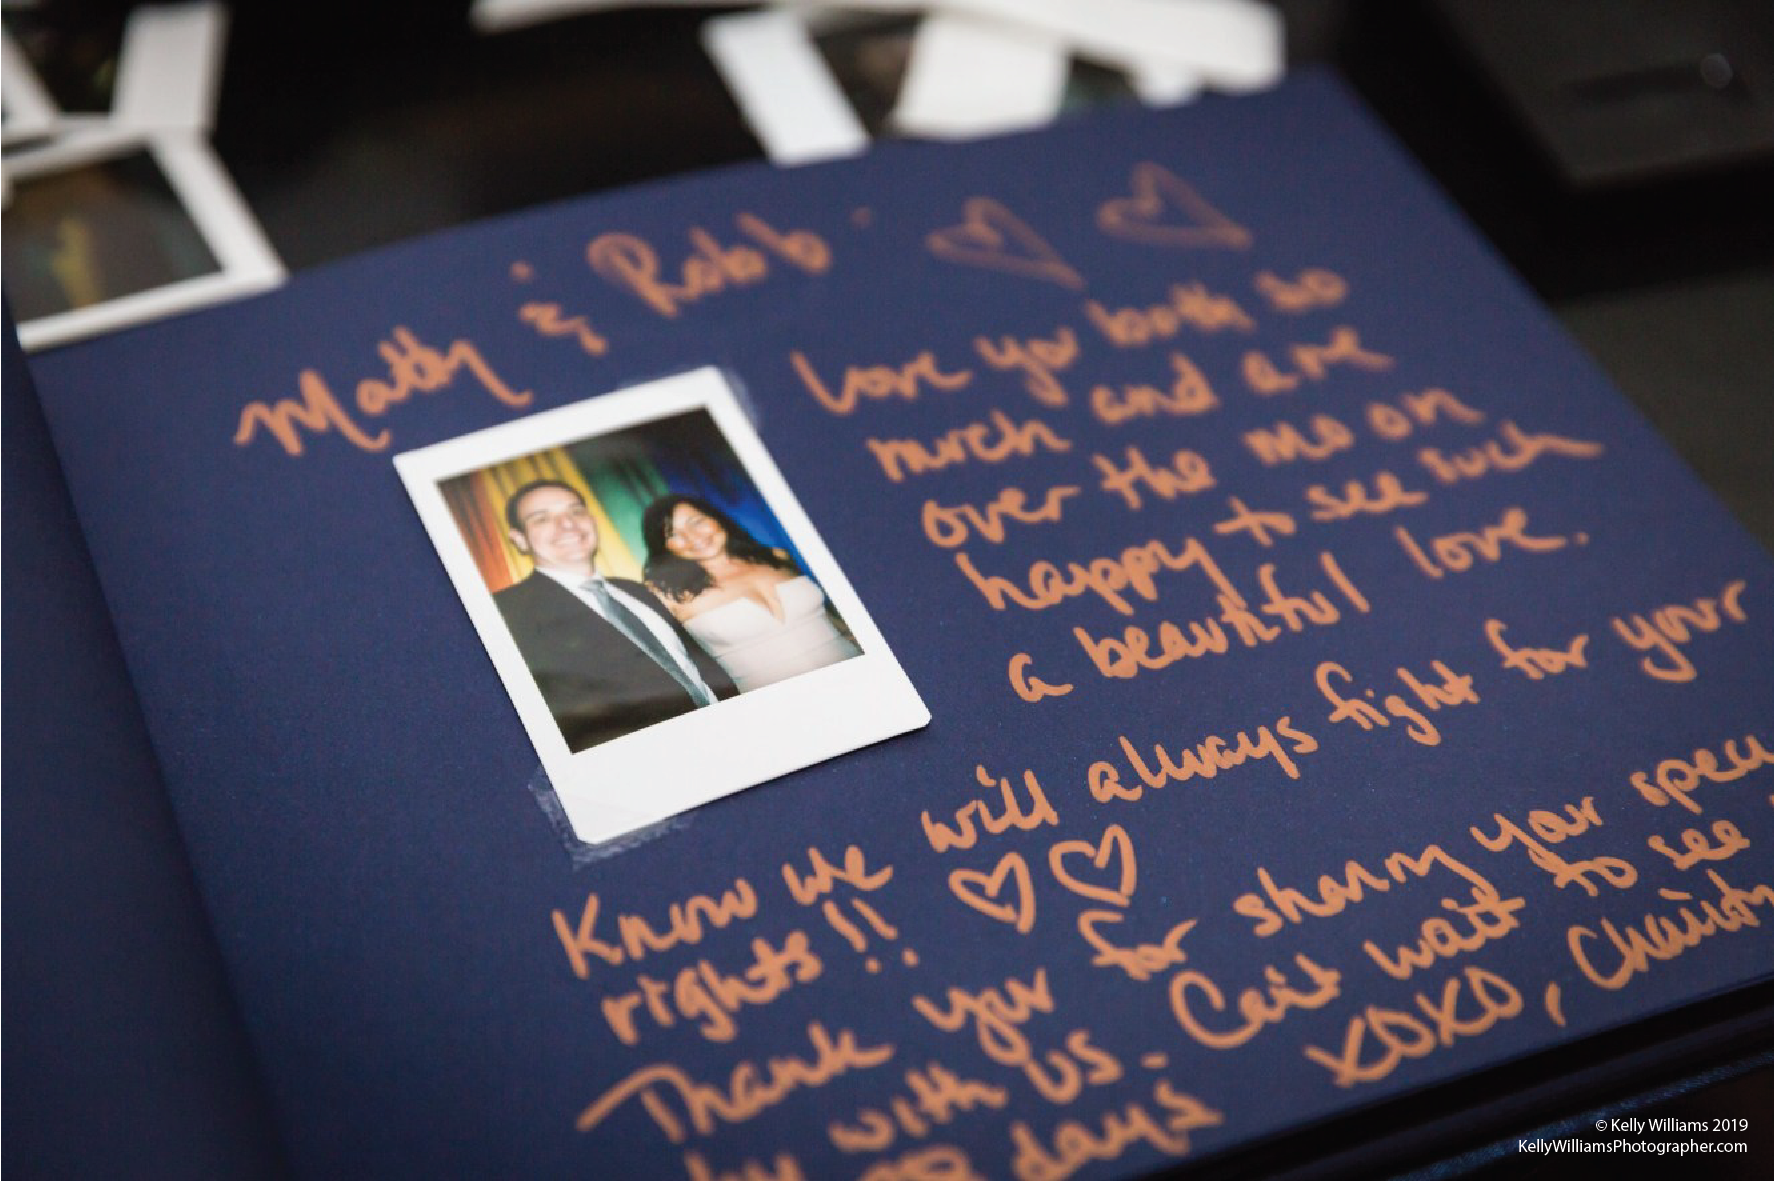 Matty & Robb -
Love you both so
much and are
over the moon
happy to see such
a beautiful love.
Know we will always fight for your
rights!!
Thank you for sharing your
with us. Can't wait to see
days
XOXO,
© Kelly Williams 2019
KellyWilliamsPhotographer.com